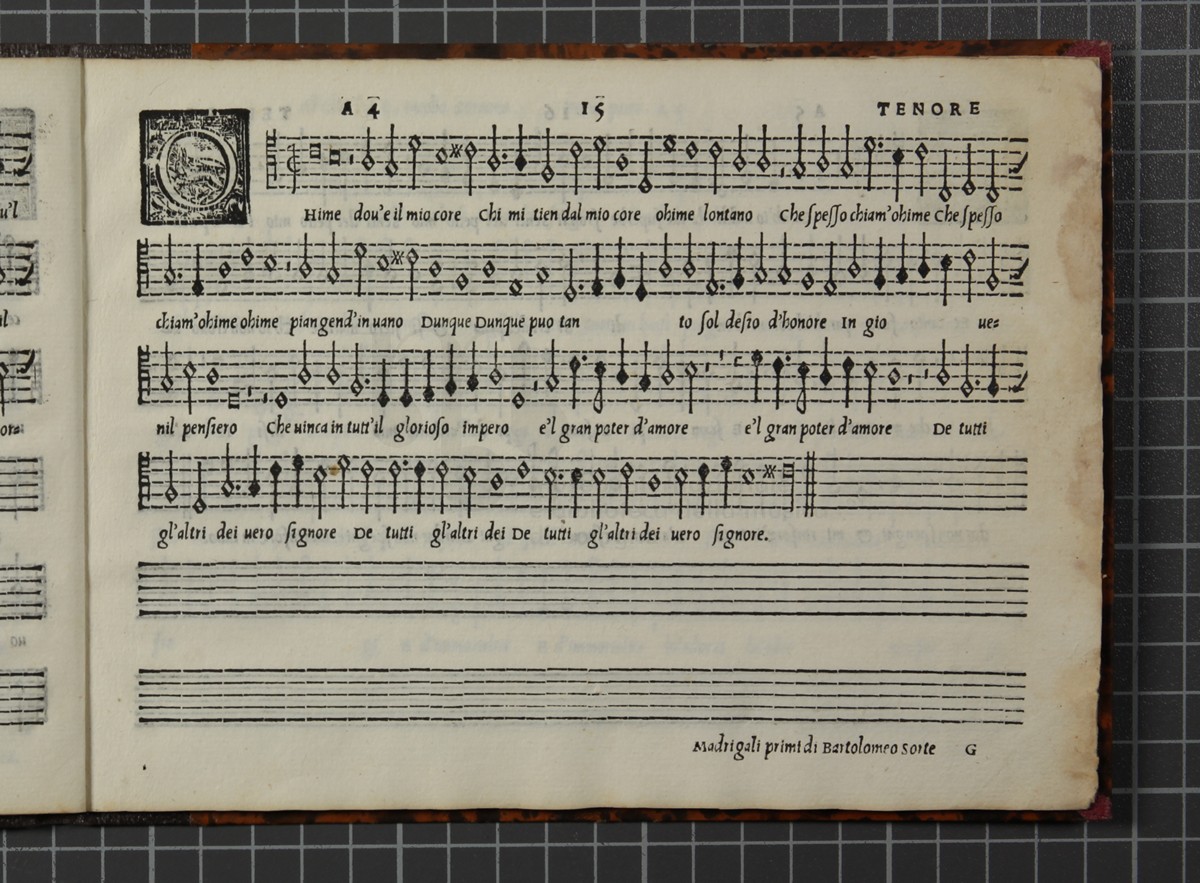 A 4̅ 15̅ TENORE
OHime dou'e il mio core Chi mi tien dal mio core ohime lontano Che speſſo chiam'ohime Che ſpeſſo
chiam'ohime ohime piangend'in uano Dunque Dunque puo tan to ſol deſio d'honore In gio ue=
nil penſiero Che uinca in tutt'il glorioſo impero e'l gran poter d'amore e'l gran poter d'amore De tutti
gl'altri dei uero ſignore De tutti gl'altri dei De tutti gl'altri dei uero ſignore.
Madrigali primi di Bartolomeo Sorte G
u'l
il
or=